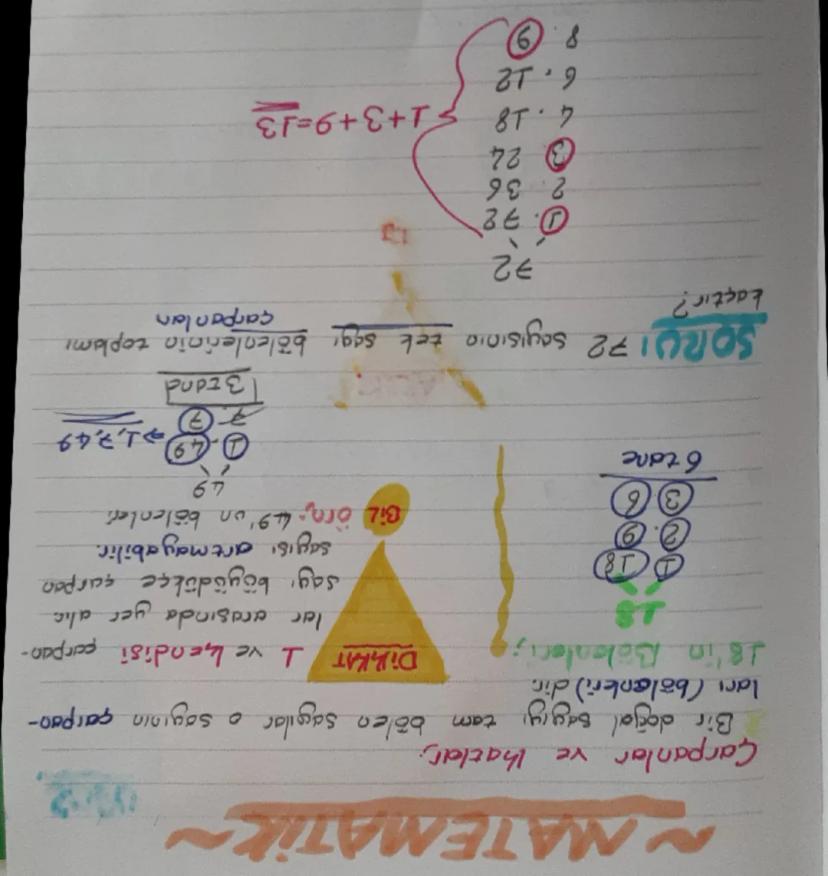 ~MATEMATİK~
Çarpanlar ve Katlar;
Bir doğal sayıyı tam bölen sayılar o sayının çarpan-
ları (bölenleri) dir.
18'in Bölenleri;
18
1 . 18
2 . 9
3 6
6 tane
DİKKAT
BİL
1 ve kendisi çarpan-
lar arasında yer alır
sayı büyüdükçe çarpan
sayısı artmayabilir.
Örn: 49'un bölenleri
49
1 . 49
7 . 7
⇒ 1,7,49
3 tane
SORU: 72 sayısının tek sayı bölenlerinin toplamı
çarpanları
kaçtır?
72
1 . 72
2 . 36
3 24
4 . 18
6 . 12
8 . 9
1+3+9=13